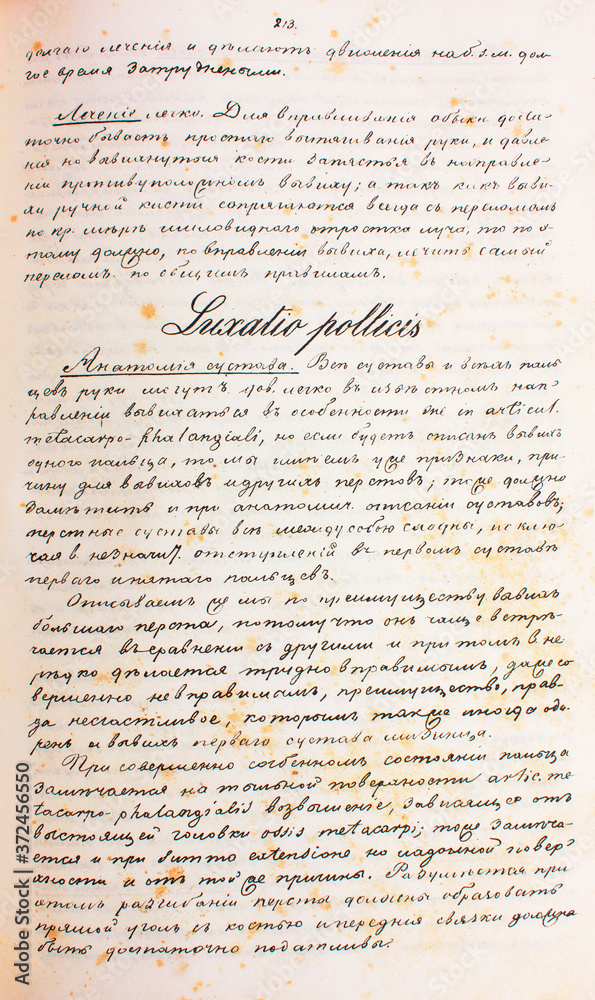 213.
долгаго леченія и дѣлаютъ движенія на б. и. м. дол-
гое время затрудненными.
Леченіе легко. Для вправливанія обыкн. доста-
точно бываетъ простаго вытягиванія руки, и давле-
нія на вывихнутыя кости запястья въ направле-
ніи противуположномъ вывиху; а такъ какъ выви-
хи ручной кисти сопрягаются всегда съ переломомъ
по кр. мѣрѣ шиловиднаго отростка луча, то по э-
тому должно, по вправленіи вывиха, лечить самый
переломъ по общимъ правиламъ.
Luxatio pollicis
Анатомія сустава. Всѣ суставы и всѣхъ паль-
цевъ руки могутъ дов. легко въ извѣстномъ нап-
равленіи вывихаться въ особенности же in articul.
metacarpo-phalangiali, но если будетъ описанъ вывихъ
одного пальца, то мы имѣемъ уже признаки, при-
чину для вывиховъ и другихъ перстовъ; тоже должно
замѣтить и при анатомич. описаніи суставовъ;
перстные суставы всѣ между собою сходны, исклю-
чая в. незначит. отступленій въ первомъ суставѣ
перваго и пятаго пальцевъ.
Описываемъ же мы по преимуществу вывихъ
большаго перста, потому что онъ чаще встрѣ-
чается въ сравненіи съ другими и при томъ в. не-
рѣдко дѣлается трудно вправимымъ, даже со-
вершенно невправимымъ, преимущество, прав-
да несчастливое, которымъ также иногда ода-
ренъ и вывихъ перваго сустава мизинца.
При совершенно согбенномъ состояніи пальца
замѣчается на тыльной поверхности artic. me-
tacarpo-phalangialis возвышеніе, зависящее отъ
выстоящей головки ossis metacarpi; тоже замѣча-
ется и при summo extensione на ладонной повер-
хности и отъ той же причины. Разумѣется при
этомъ разгибаніи персты должны образовать
прямой уголъ съ костью и передняя связки должна
быть достаточно податливы.
Adobe Stock
372456550